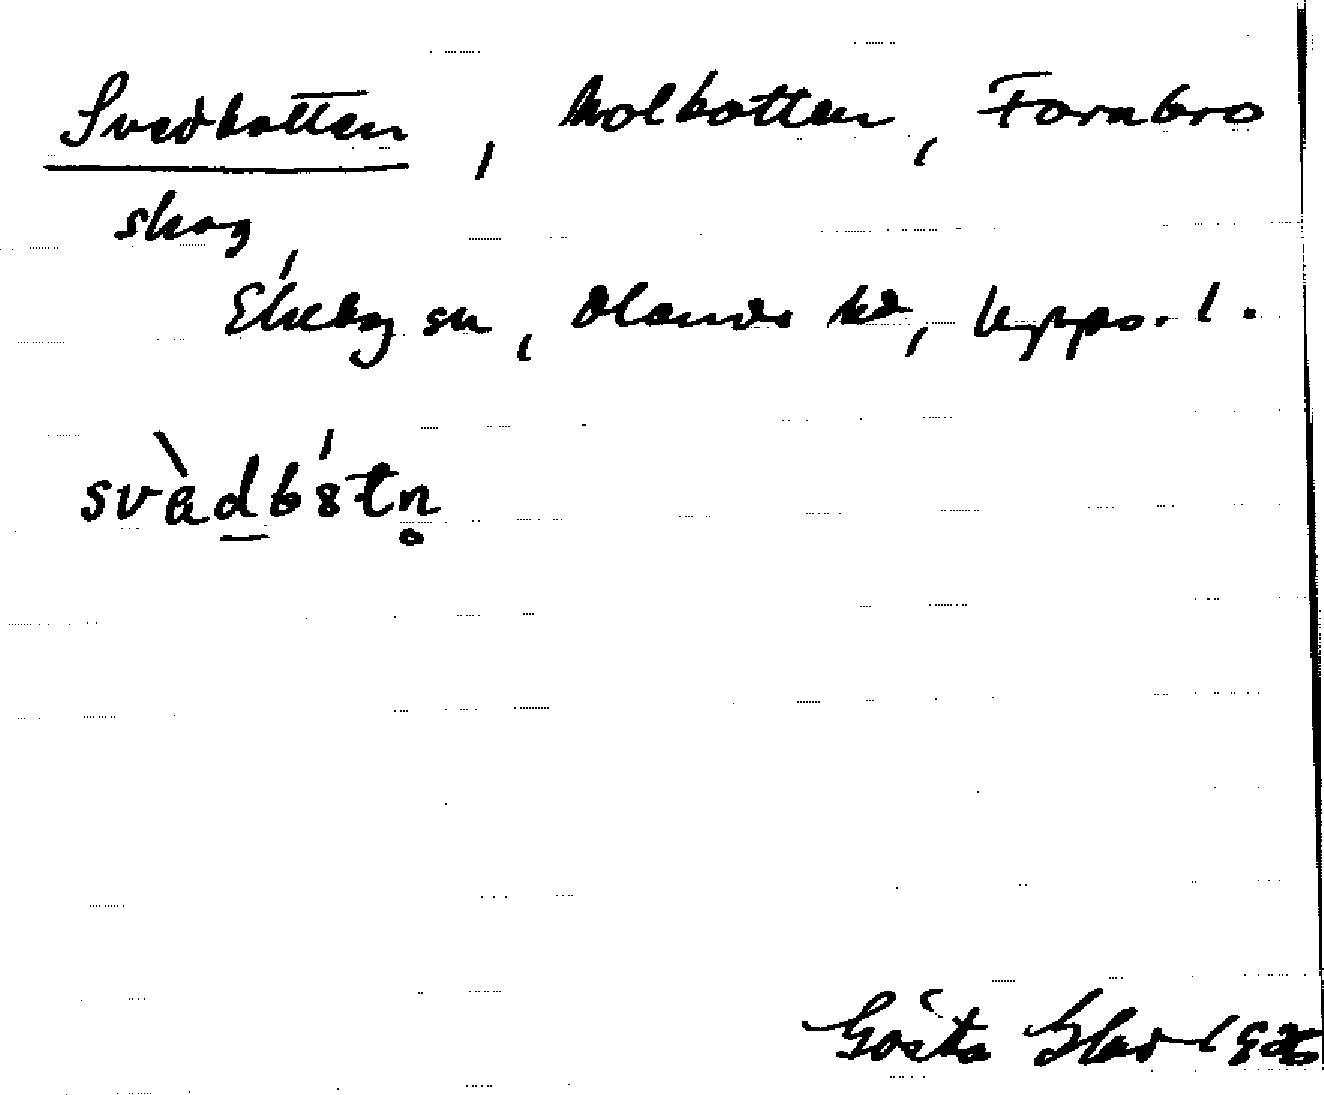 Svedbotten, kolbotten, Fornbro
skog,
Ekeby sn, Olands hd, Upps. l.
svàdb́8tn̥
Gösta